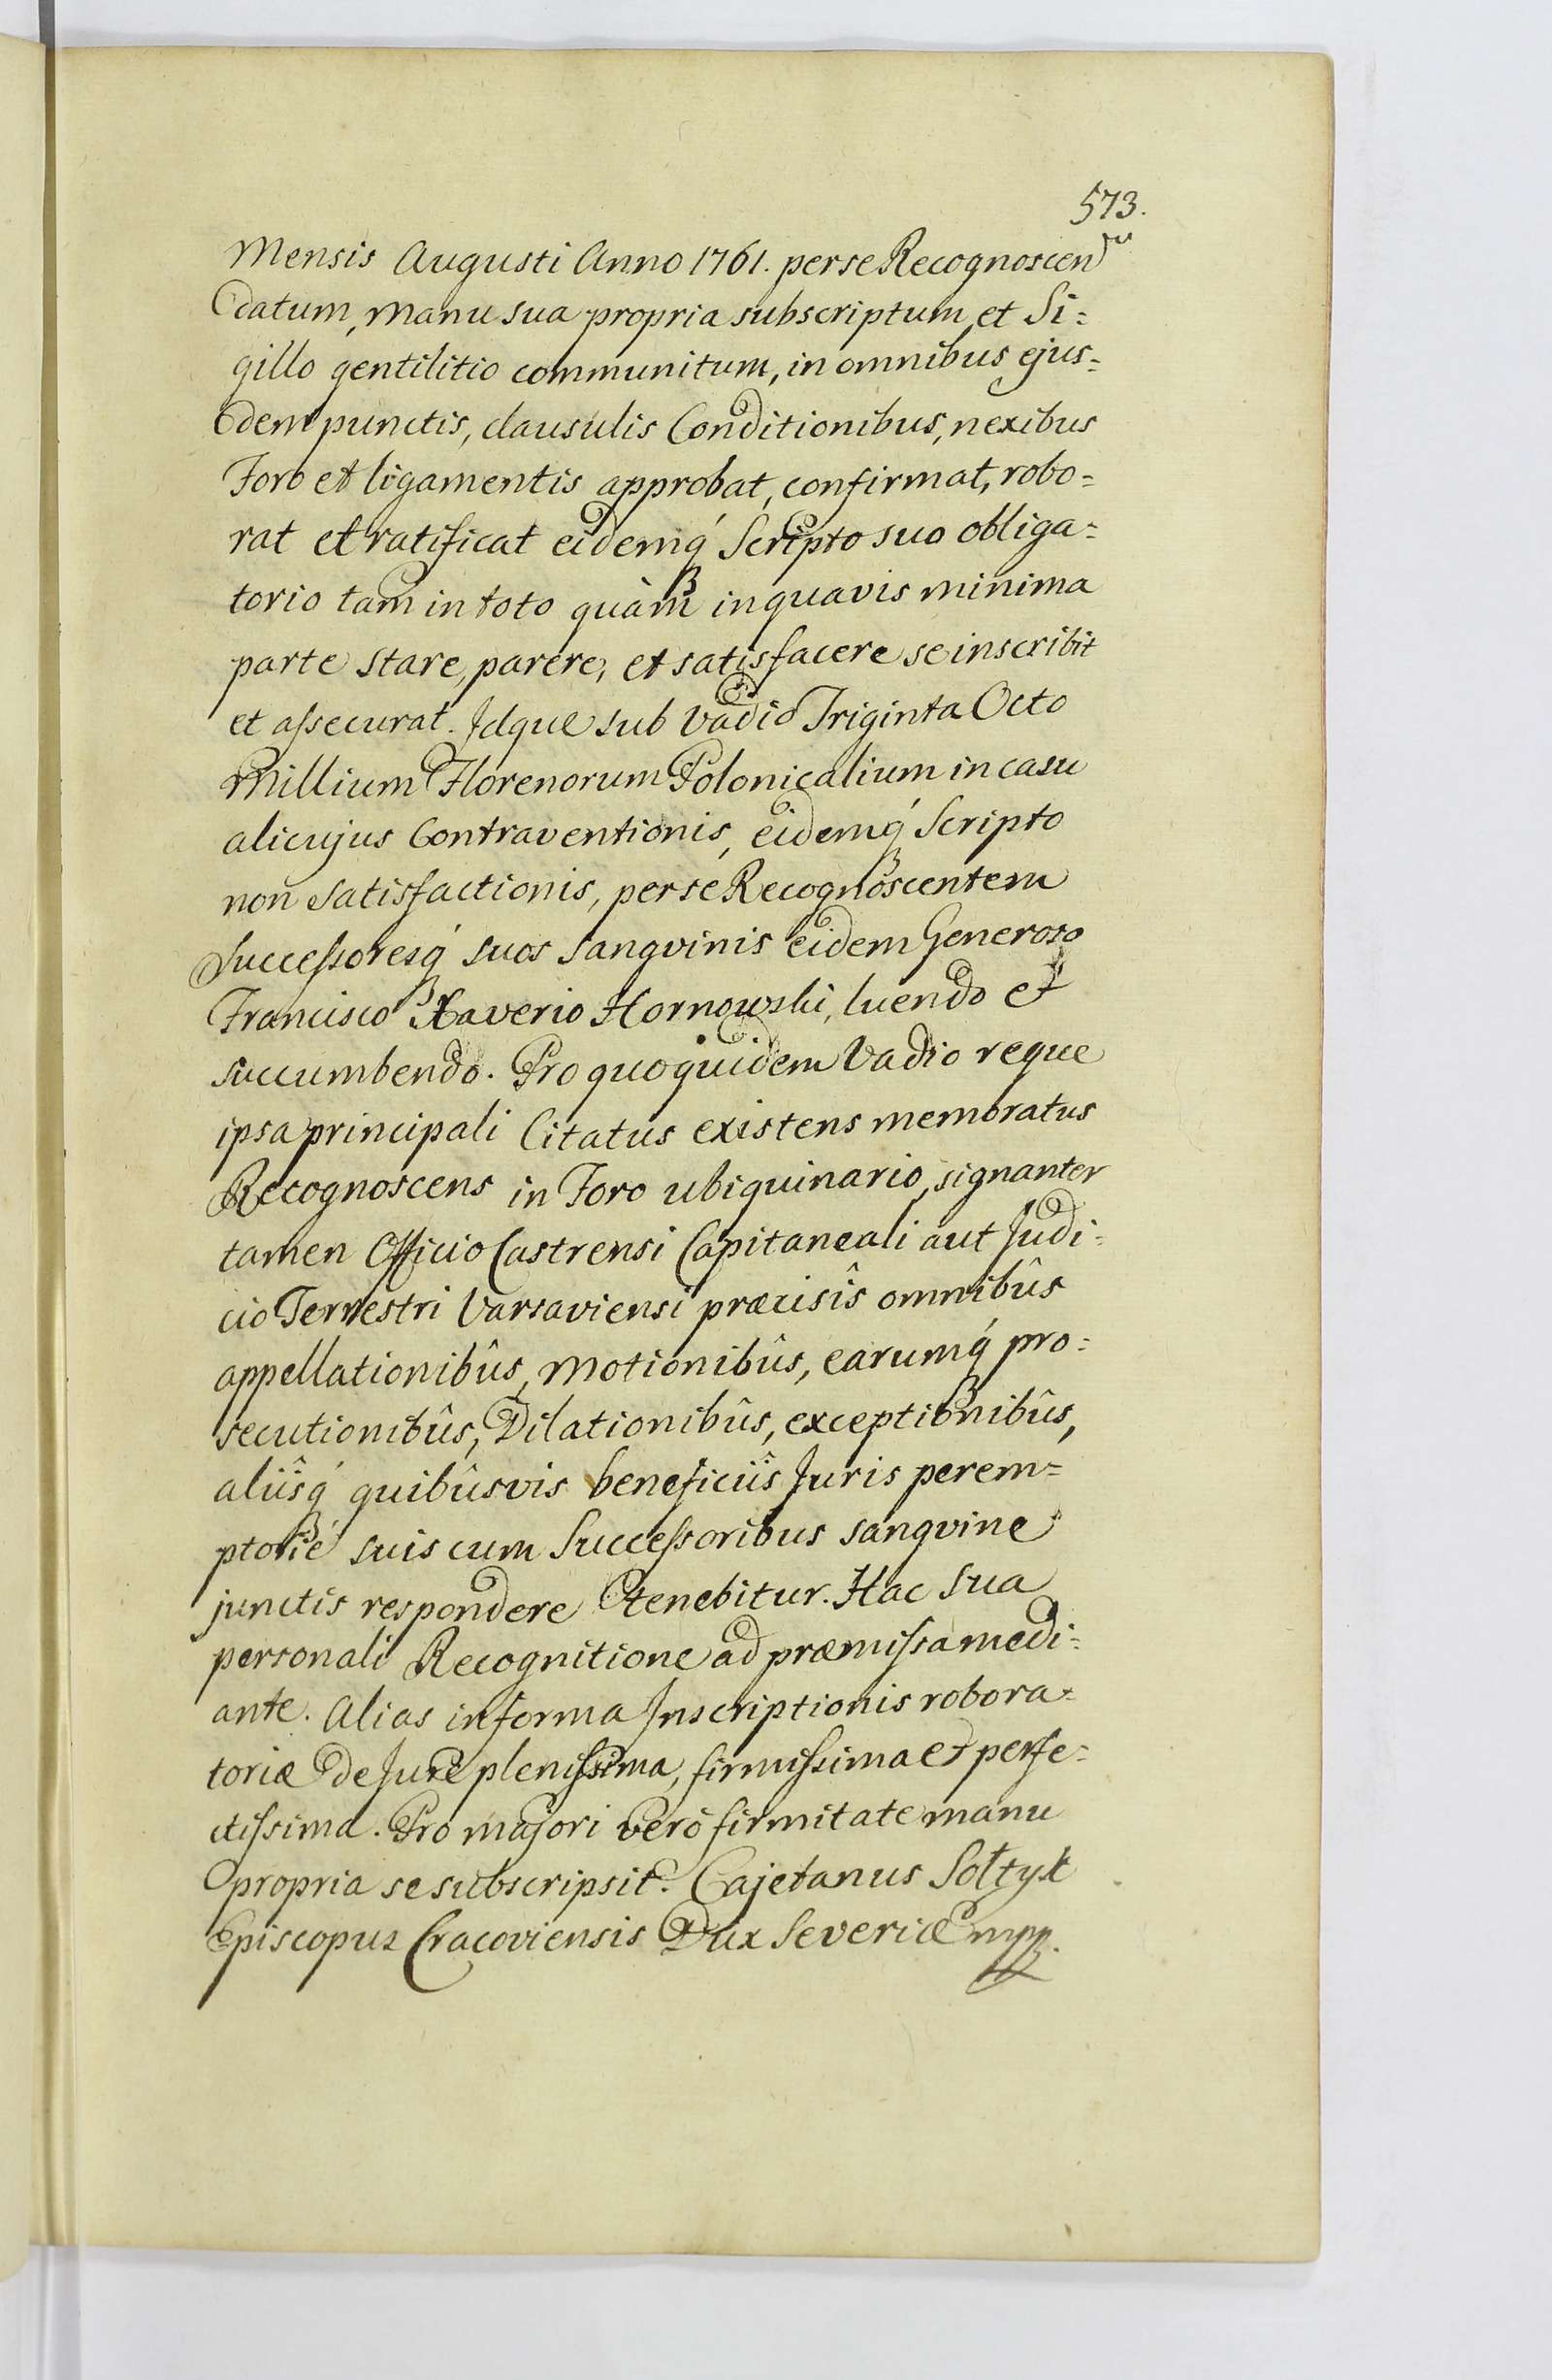 573.
Mensis Augusti Anno 1761. per se Recognoscen
datum, manu sua propria subscriptum et Si=
gillo gentilitio communitum, in omnibus ejus=
dem punctis, clausulis Conditionibus, nexibus
Foro et ligamentis approbat, confirmat, robo=
rat et ratificat eidemq́ Scripto suo obliga=
torio tam in toto quàm in quavis minima
parte stare, parere, et satisfacere se inscribit
et assecurat. Idque sub Vadio Triginta Octo
Millium Florenorum Polonicalium in casu
alicujus Contraventionis, eidemq́ Scripto
non satisfactionis, per se Recognoscentem
Successoresq́ suos sangvinis eidem Generoso
Francisco Xaverio Hornowski, luendo et
succumbendo. Pro quo quidem Vadio reque
ipsa principali Citatus existens memoratus
Recognoscens in Foro ubiquinario, signanter
tamen Officio Castrensi Capitaneali aut Judi=
cio Terrestri Varsaviensi præcisîs omnibûs
appellationibûs, motionibûs, earumq́ pro=
secutionibûs, Dilationibûs, exceptionibûs,
aliîsq́ quibûsvis beneficiîs Juris perem=
ptoriè suis cum Successoribus sangvine
junctis respondere tenebitur. Hac sua
personali Recognitione ad præmissa medi=
ante. Alias in forma Inscriptionis robora=
toriæ de Jure plenissima, firmissima et perfe=
ctissima. Pro majori verò firmitate manu
propria se subscripsit. Cajetanus Sołtyk
Episcopus Cracoviensis Dux Severiæ mpp.